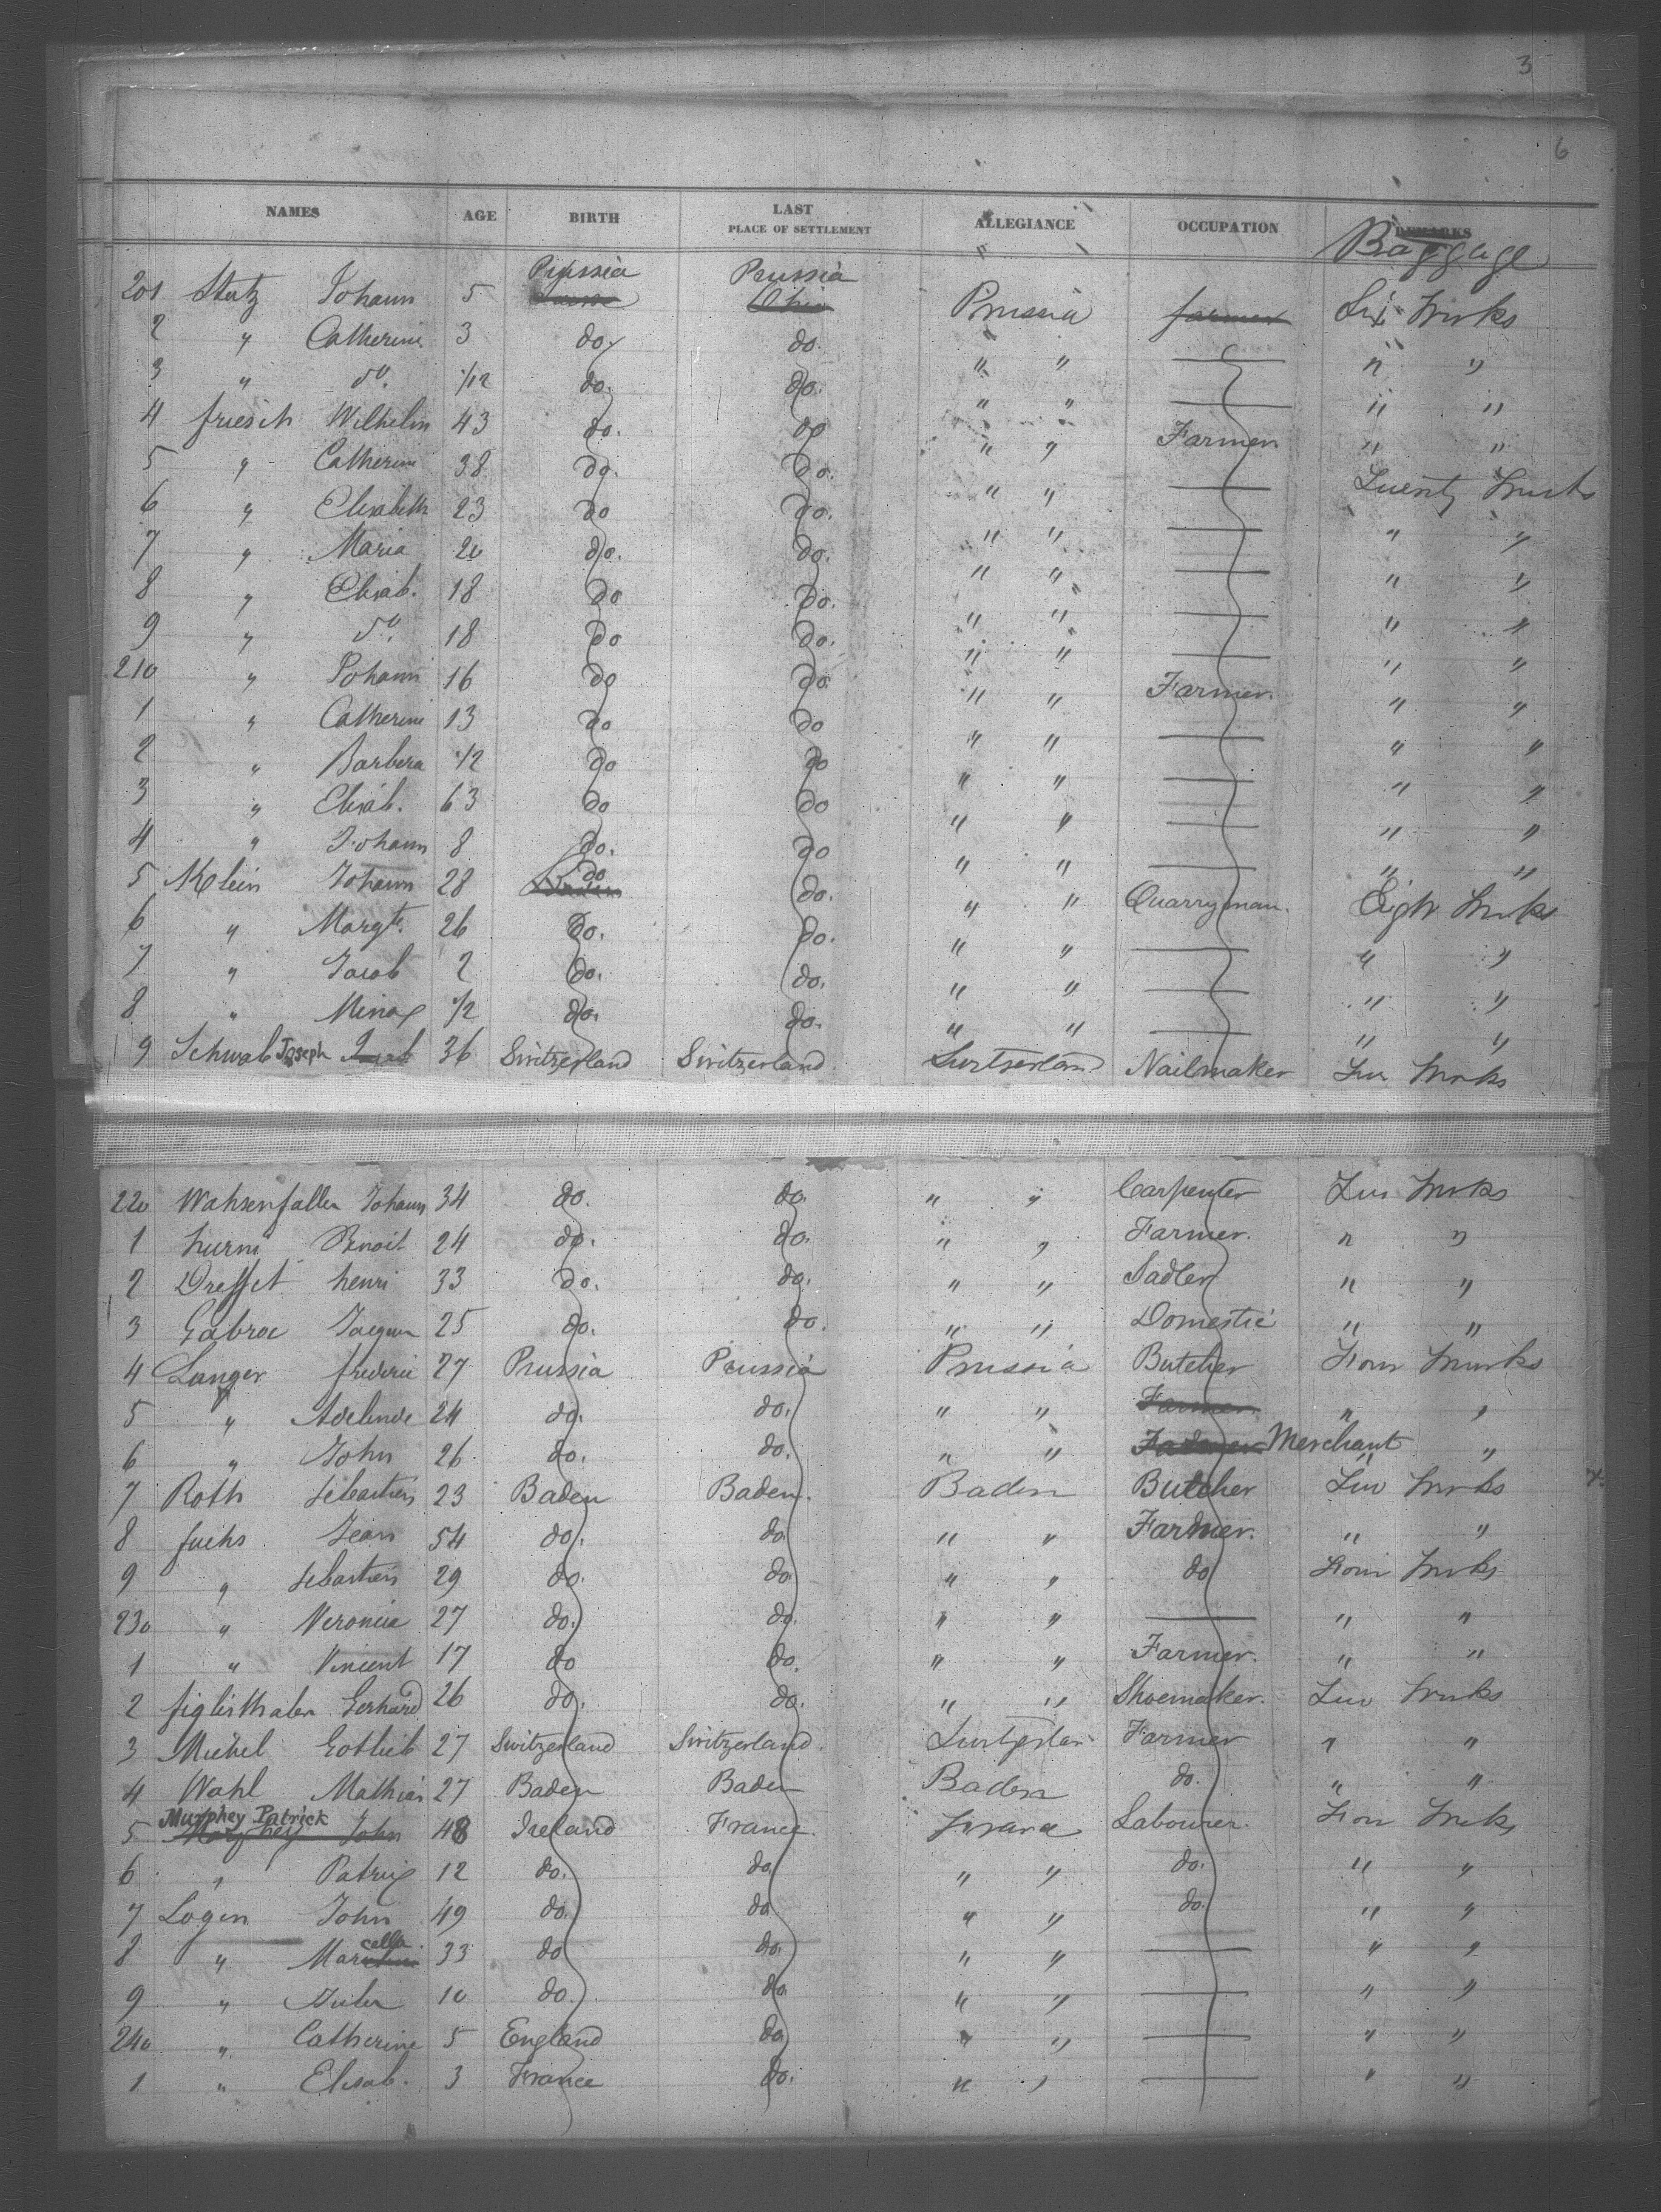 3
6
NAMES AGE BIRTH LAST PLACE OF SETTLEMENT ALLEGIANCE OCCUPATION REMARKS
Baggage
Prussia Prussia
201 Stutz Johann 5 Prussia farmer Six Trunks
2 " Catherine 3 do. do. " " " "
3 " do. 1/12 do. do. " " " "
4 friesch Wilhelm 43 do. do " " Farmer " "
5 " Catherine 38 do. do. " " Twenty Trunks
6 " Elisabeth 23 do do. " " " "
7 " Maria 20 do. do. " " " "
8 " Elisab. 18 do do. " " " "
9 " do. 18 do do. " " " "
210 " Johann 16 do do " " Farmer. " "
1 " Catherine 13 do do " " " "
2 " Barbera 1/2 do do " " " "
3 " Elisab. 63 do do " " " "
4 " Johann 8 do. do " " " "
5 Klein Johann 28 do do. " " Quarryman. Eight Trunks
6 " Margte. 26 do. do. " " " "
7 " Jacob 2 do. do. " " " "
8 " 1/2 do. do. " " " "
9 Schwab Joseph 36 Switzerland Switzerland Switzerland Nailmaker Two Trunks
220 Wahsenfallen Johann 34 do. do. " " Carpenter Two Trunks
1 hurni Benoit 24 do. do. " " Farmer. " "
2 henri 33 do. do. " " Sadler " "
3 Gabroe 25 do. do. " " Domestic " "
4 Langer frederic 27 Prussia Prussia Prussia Butcher Four Trunks
5 " Adelinde 24 do. do. " " Farmer " "
6 " John 26 do. do. " " Merchant "
7 Roth sebastien 23 Baden Baden. Baden Butcher Two Trunks
8 fuchs Jean 54 do. do. " " Farmer. " "
9 " sebastien 29 do. do. " " do Four Trunks
230 " Veronica 27 do. do. " " " "
1 " Vincent 17 do do. " " Farmer. " "
2 figlisthaler Gerhard 26 do. do. " " Shoemaker. Two Trunks
3 Michel Gottlieb 27 Switzerland Switzerland. Farmer " "
4 Wahl Mathias 27 Baden Baden Baden do. " "
Murphey Patrick
5 Murphey John 48 Ireland France. France Labourer. Four Trunks
6 " Patrig 12 do. do. " " do. " "
7 Logen John 49 do. do " " do. " "
8 " Marcella 33 do do. " " " "
9 " 10 do. do " " " "
240 " Catherine 5 England do " " " "
1 " Elisab. 3 France do. " " " "